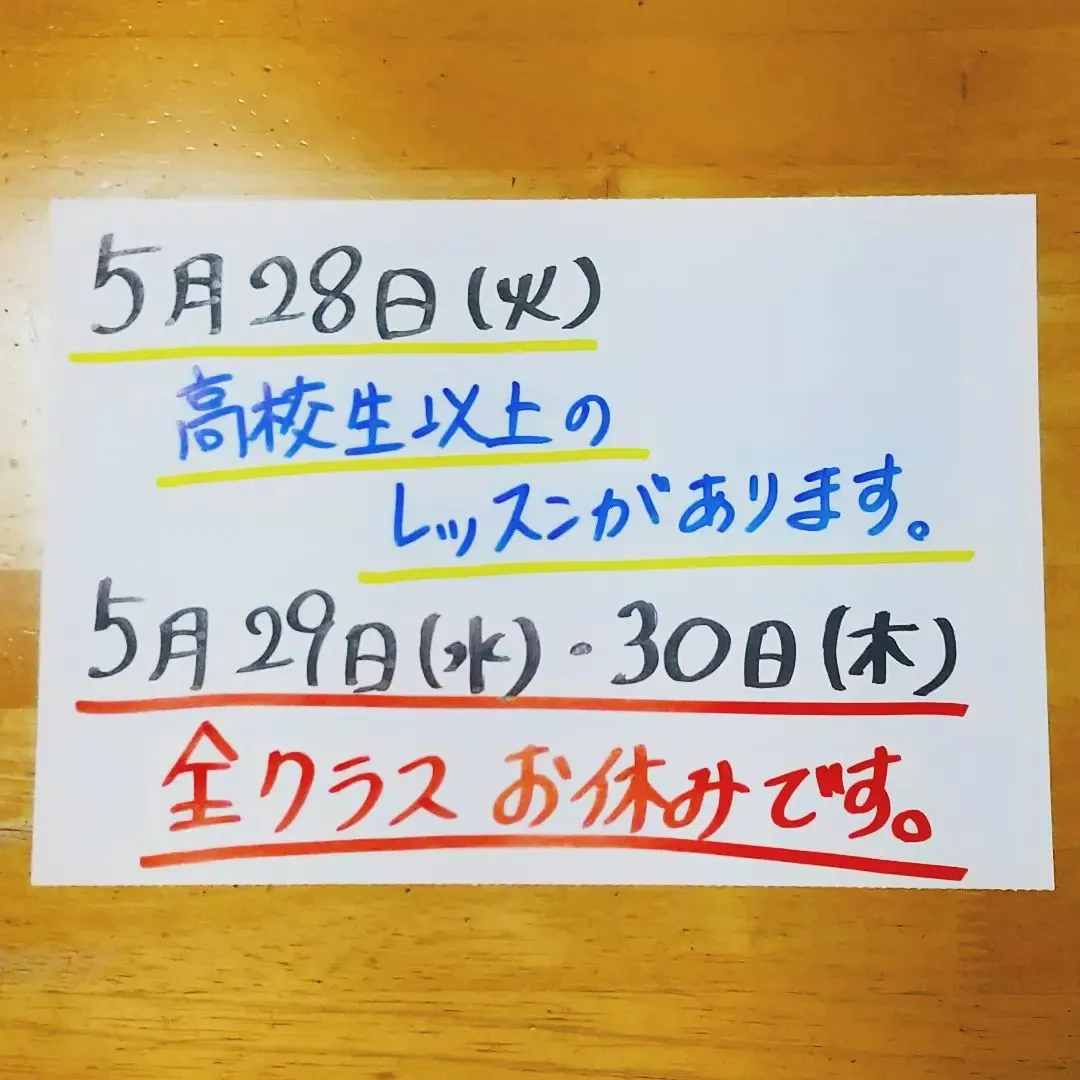 5月28日(火)
高校生以上の
レッスンがあります。
5月29日(水)・30日(木)
全クラス お休みです。